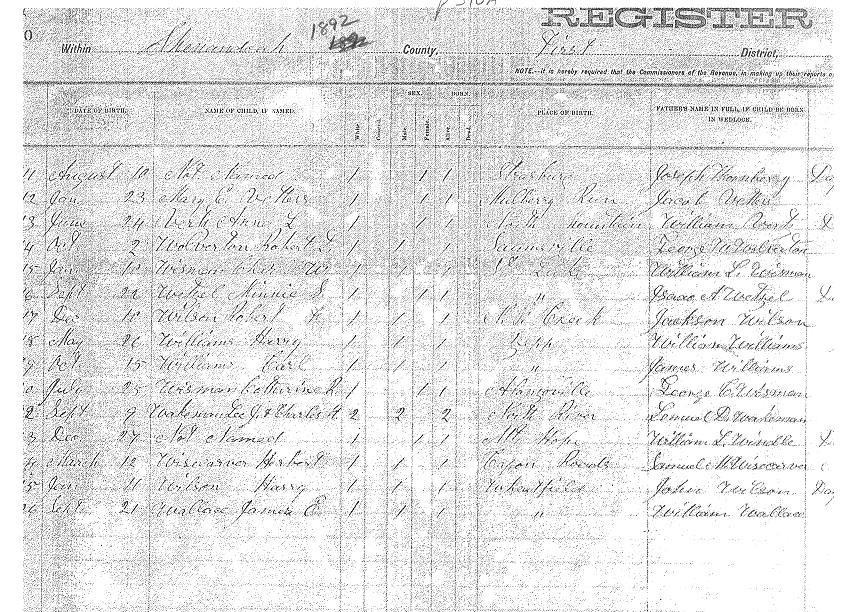 REGISTER
1892
Within Shenandoah County, First District,
NOTE.--It is hereby required that the Commissioners of the Revenue, in making up their reports
SEX. BORN.
DATE OF BIRTH. NAME OF CHILD, IF NAMED. White Colored. Male Female. Alive Dead. PLACE OF BIRTH. FATHER'S NAME IN FULL, IF CHILD BE BORN
IN WEDLOCK.
11 August 10 Not Named 1 1 1 Strasburg Joseph Day
12 Jan 23 Mary E. 1 1 1 Mulberry Run Jacob
13 June 24 Annie L 1 1 1 North Mountain William
Oct 2 Wolverton Robert 1 1 1 Saumsville George W Wolverton
15 Jan Wisman W 1 1 1 St Luke William L. Wisman
Sept 21 Wetzel Minnie S 1 1 1 " Isaac A Wetzel
17 Dec Wilson Robert 1 1 1 Jackson Wilson
18 May 26 Williams Harry 1 1 1 William Williams
Oct 15 Williams Carl 1 1 1 " James Williams
July 25 Wisman Catharine R 1 1 1 Alonzoville George C. Wisman
2 Sept 9 Wakeman Lee J. & Charles H 2 2 2 North River Lemuel D. Wakeman
3 Dec 27 Not Named 1 1 1 Mt Hope William L. Windle
March 12 Wisecarver Herbert 1 1 1 Roads Samuel H Wisecarver
5 Jan 11 Wilson Harry 1 1 1 Wheatfield John Wilson Day
Sept 21 Wallace James E 1 1 1 " William Wallace